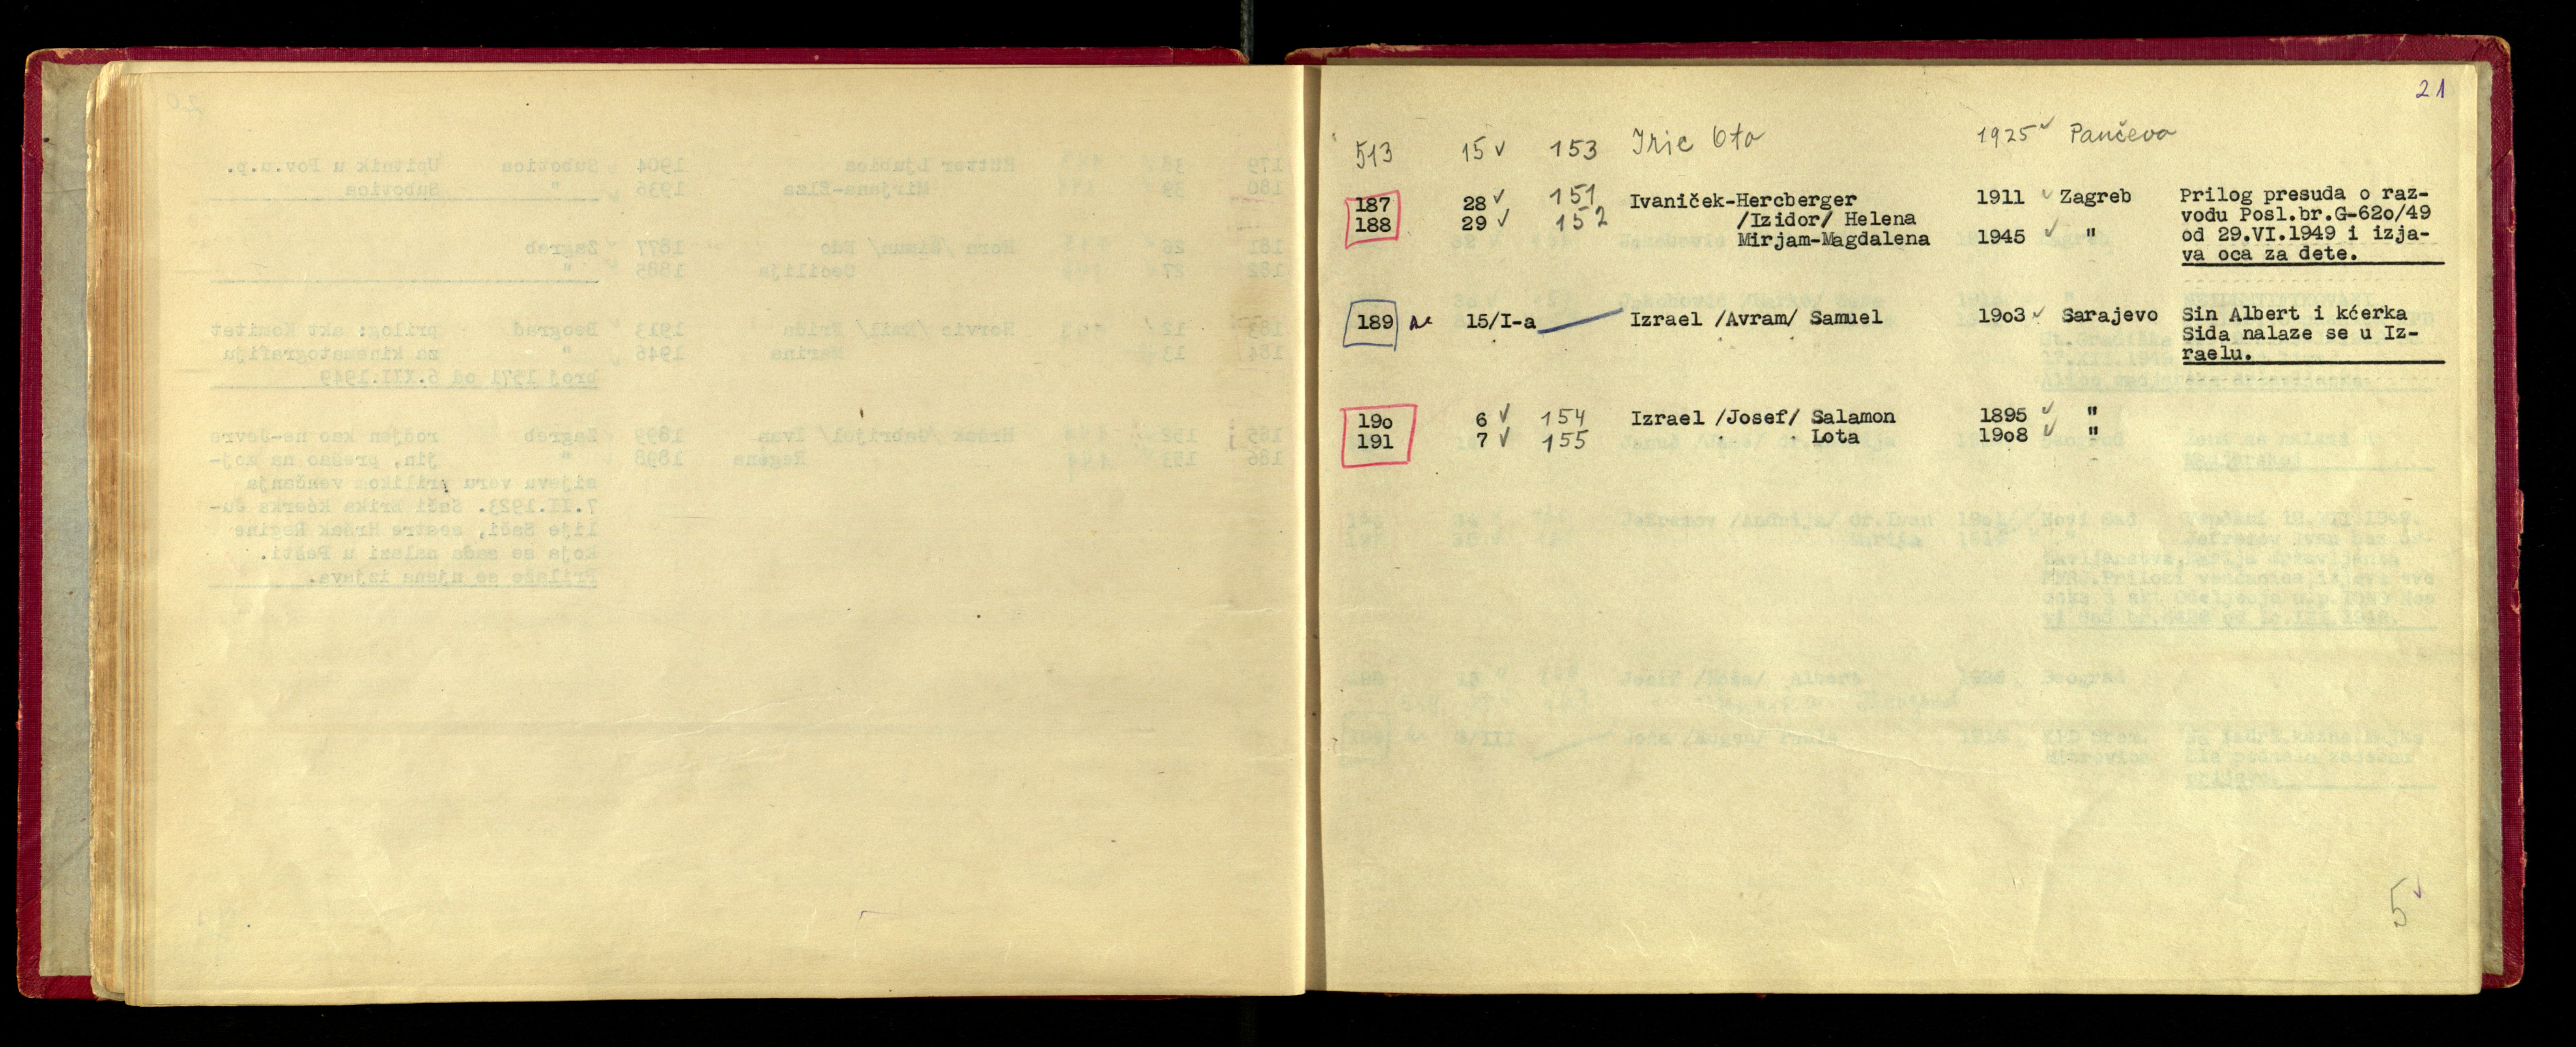 21
513 15 ✓ 153 Iric Oto 1925 ✓ Pančevo
187 28 ✓ 151 Ivaniček-Hercberger 1911 ✓ Zagreb Prilog presuda o raz-
188 29 ✓ 152 /Izidor/ Helena vodu Posl.br.G-62o/49
Mirjam-Magdalena 1945 ✓ " od 29.VI.1949 i izja-
va oca za dete.
189 ne 15/I-a Izrael /Avram/ Samuel 19o3 ✓ Sarajevo Sin Albert i kćerka
Sida nalaze se u Iz-
raelu.
19o 6 ✓ 154 Izrael /Josef/ Salamon 1895 ✓ "
191 7 ✓ 155 " " Lota 19o8 ✓ "
5 ✓